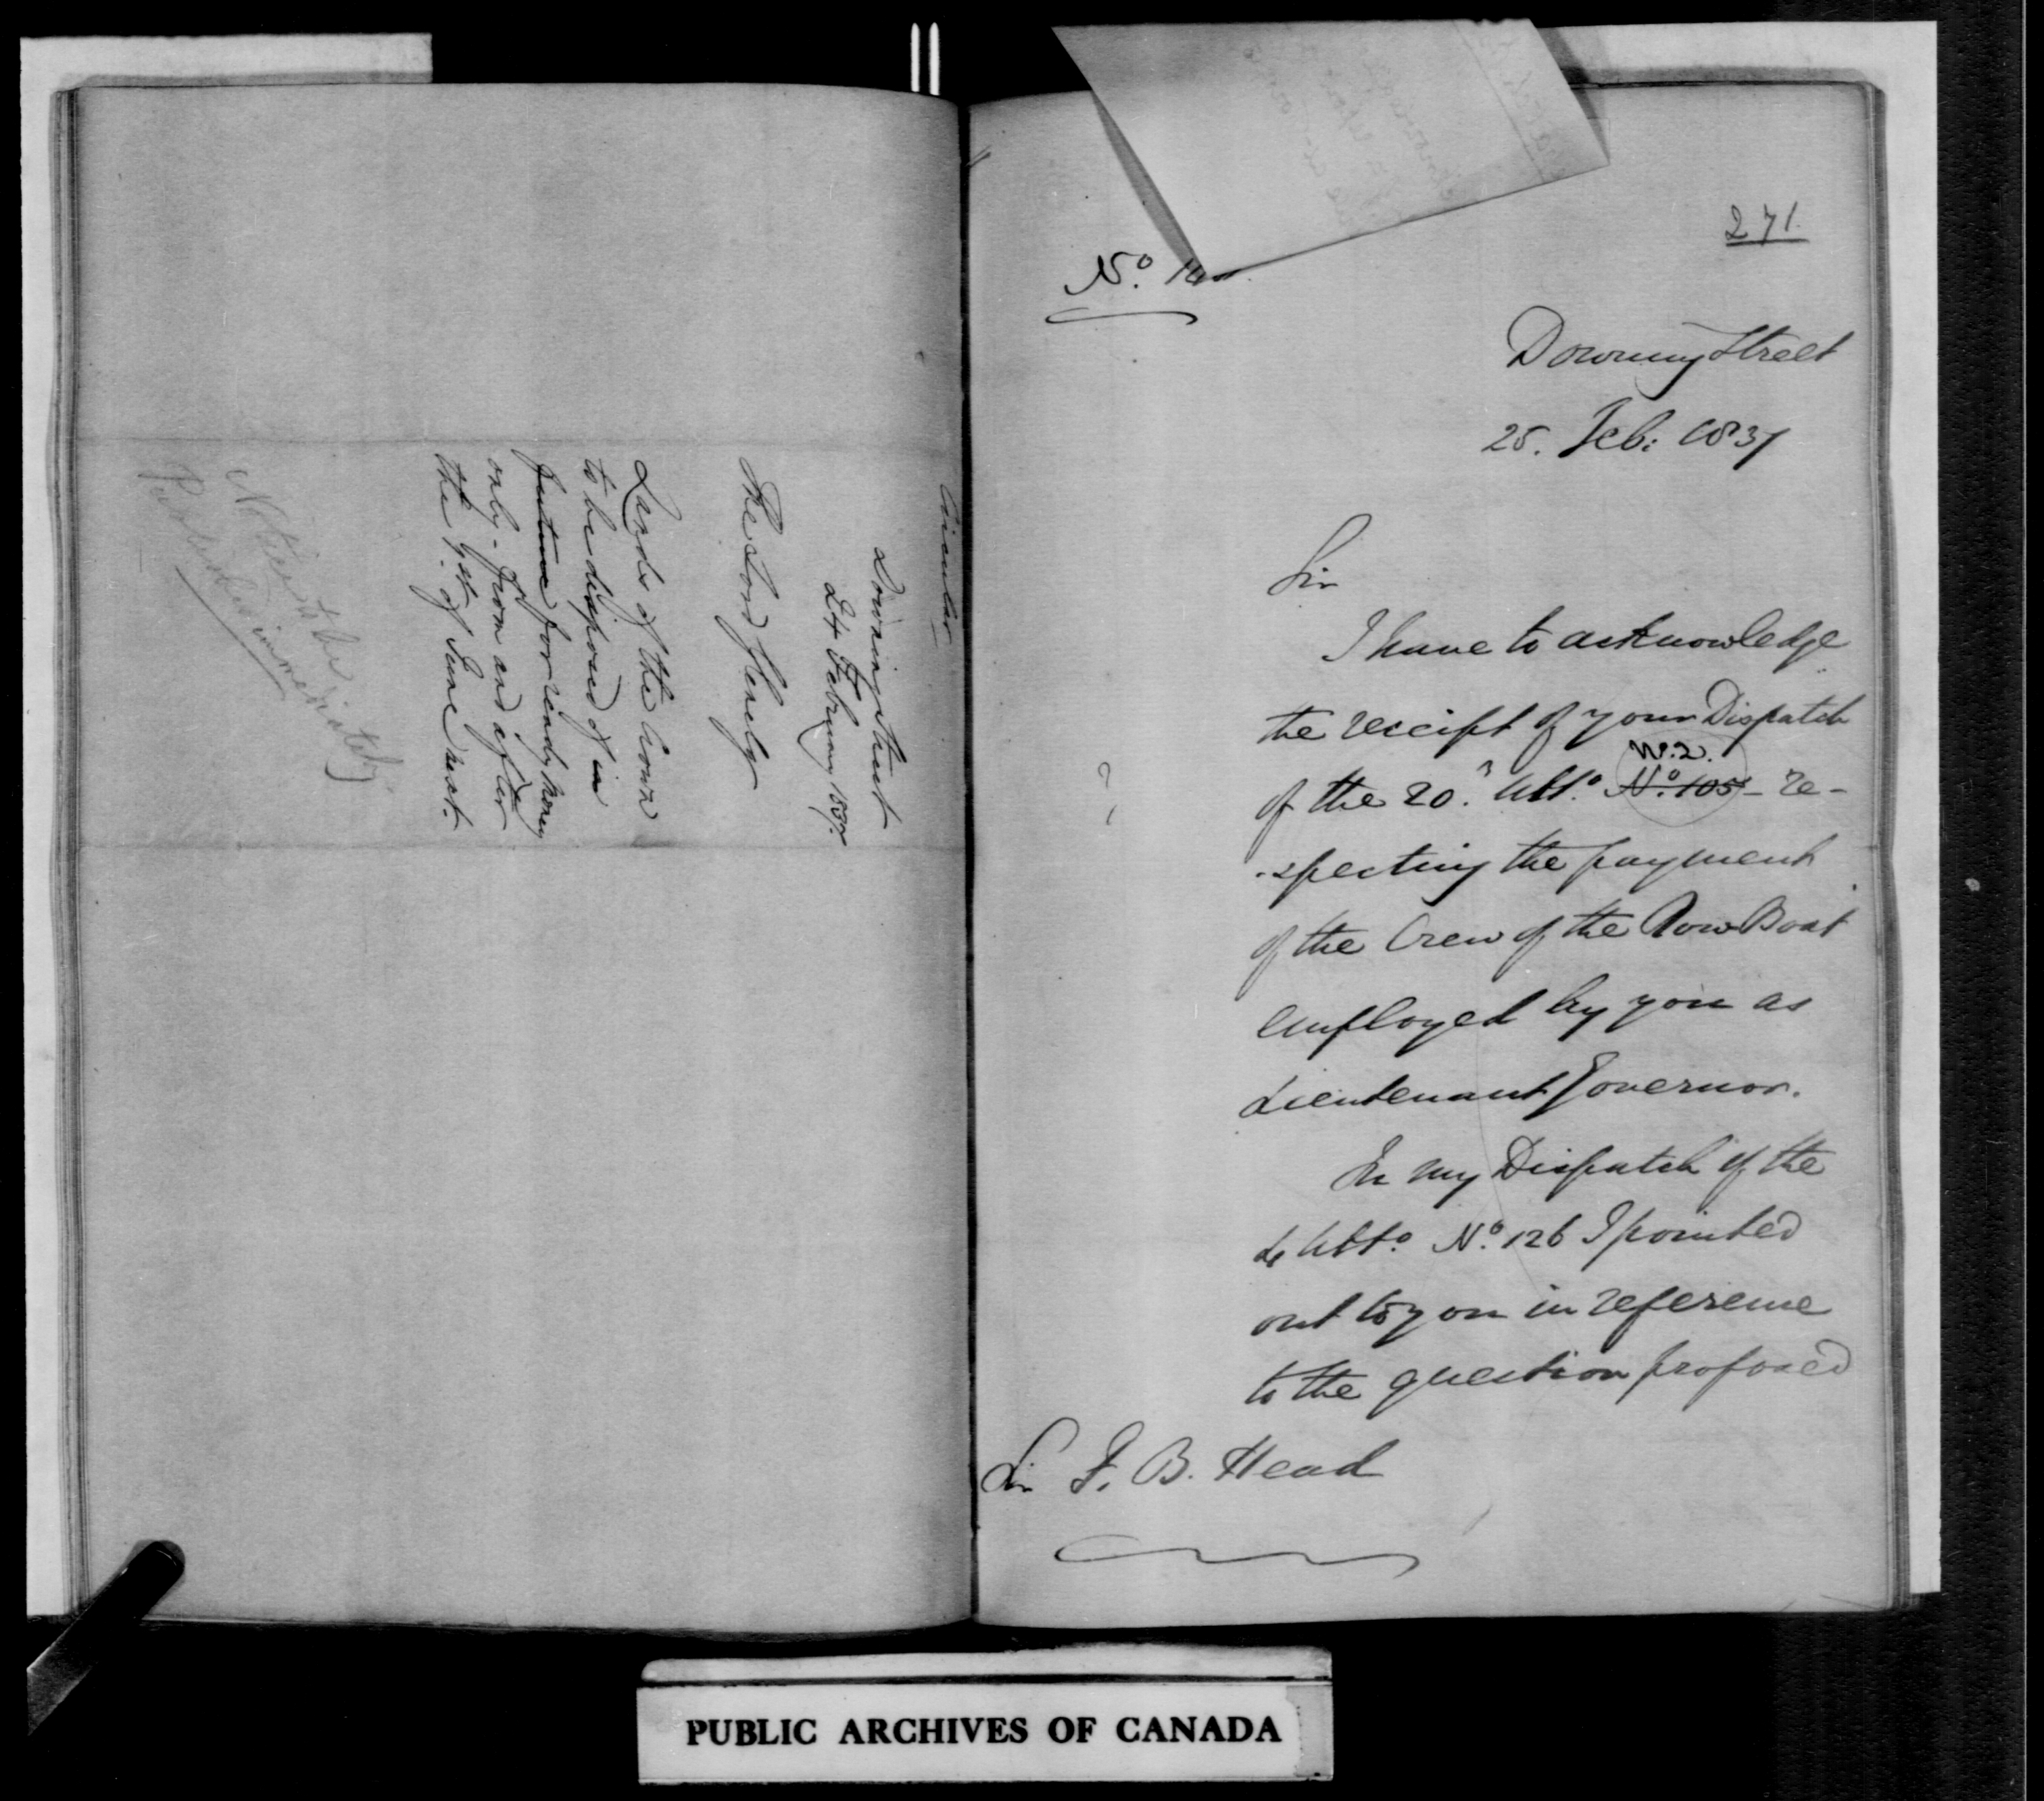 Circular
Downing Street
24 February 1837.
The Lord Glenelg
Lands of the Crown
to be disposed of in
future for ready money
only - from and after
the 1st. of June next.
Notice to be
Published immediately
271.
No.
Downing Street
25. Feb: 1837
Sir
I have to acknowledge
the receipt of your Dispatch
No. 2.
of the 20. Ulto. No. 105 - re-
-specting the payment
of the Crew of the Row Boat
employed by you as
Lieutenant Governor.
In my Dispatch of the
4 Ulto. No. 126 I pointed
out to you in reference
to the question proposed
Sir F. B. Head
PUBLIC ARCHIVES OF CANADA